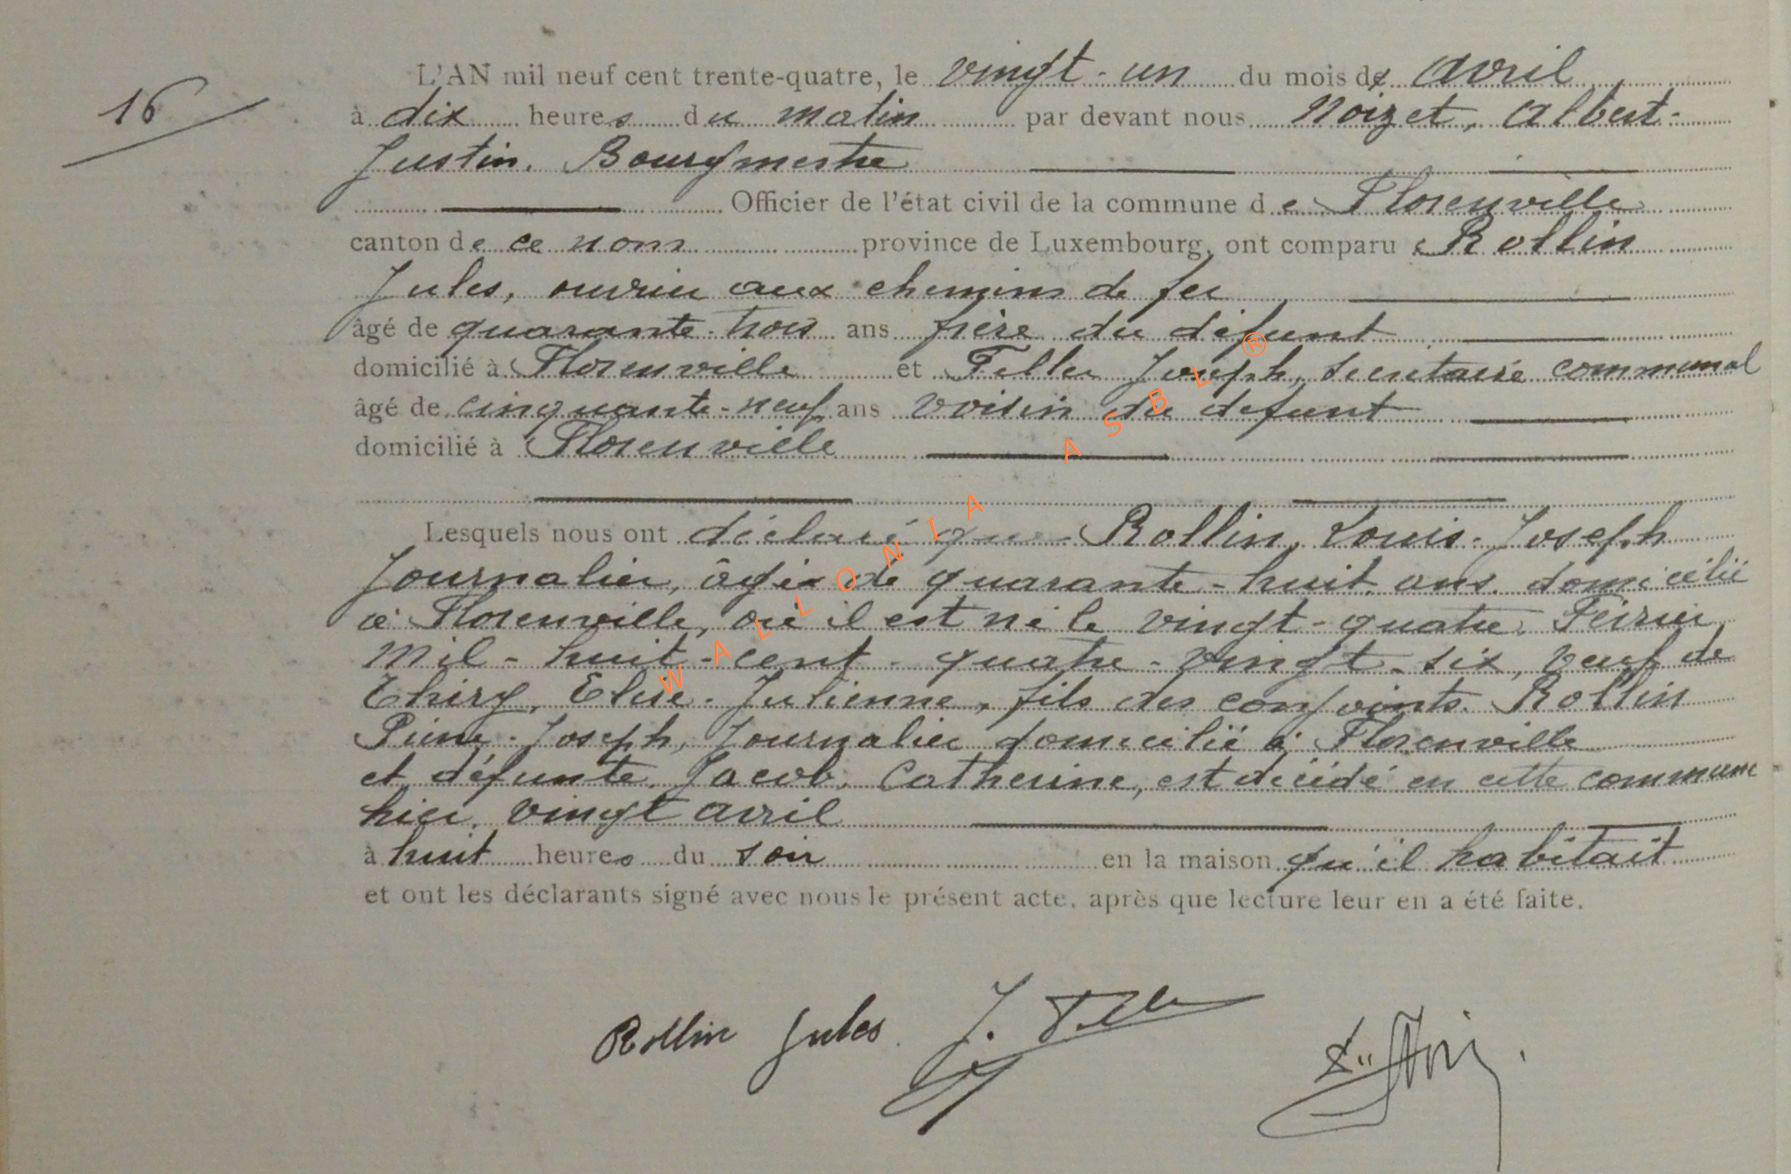 16
L'AN mil neuf cent trente-quatre, le vingt-un du mois d' avril
à dix heures du matin par devant nous Noizet, Albert-
Justin, Bourgmestre
Officier de l'état civil de la commune de Florenville
canton de ce nom province de Luxembourg, ont comparu Rollin
Jules, ouvrier aux chemins de fer
âgé de quarante-trois ans frère du défunt
domicilié à Florenville et Feller Joseph, secrétaire communal
âgé de cinquante-neuf ans voisin du défunt
domicilié à Florenville
Lesquels nous ont déclaré que Rollin, Louis-Joseph
Journalier, âgé de quarante-huit ans, domicilié
à Florenville, où il est né le vingt-quatre Février
mil-huit-cent-quatre-vingt-six, veuf de
Thiry, Elise-Julienne, fils des conjoints Rollin
Pierre-Joseph, Journalier domicilié à Florenville
et défunte Jacob, Catherine, est décédé en cette commune
hier, vingt avril
à huit heures du soir en la maison qu'il habitait
et ont les déclarants signé avec nous le présent acte, après que lecture leur en a été faite.
Rollin Jules J. Feller
WALLONIA ASBL ®